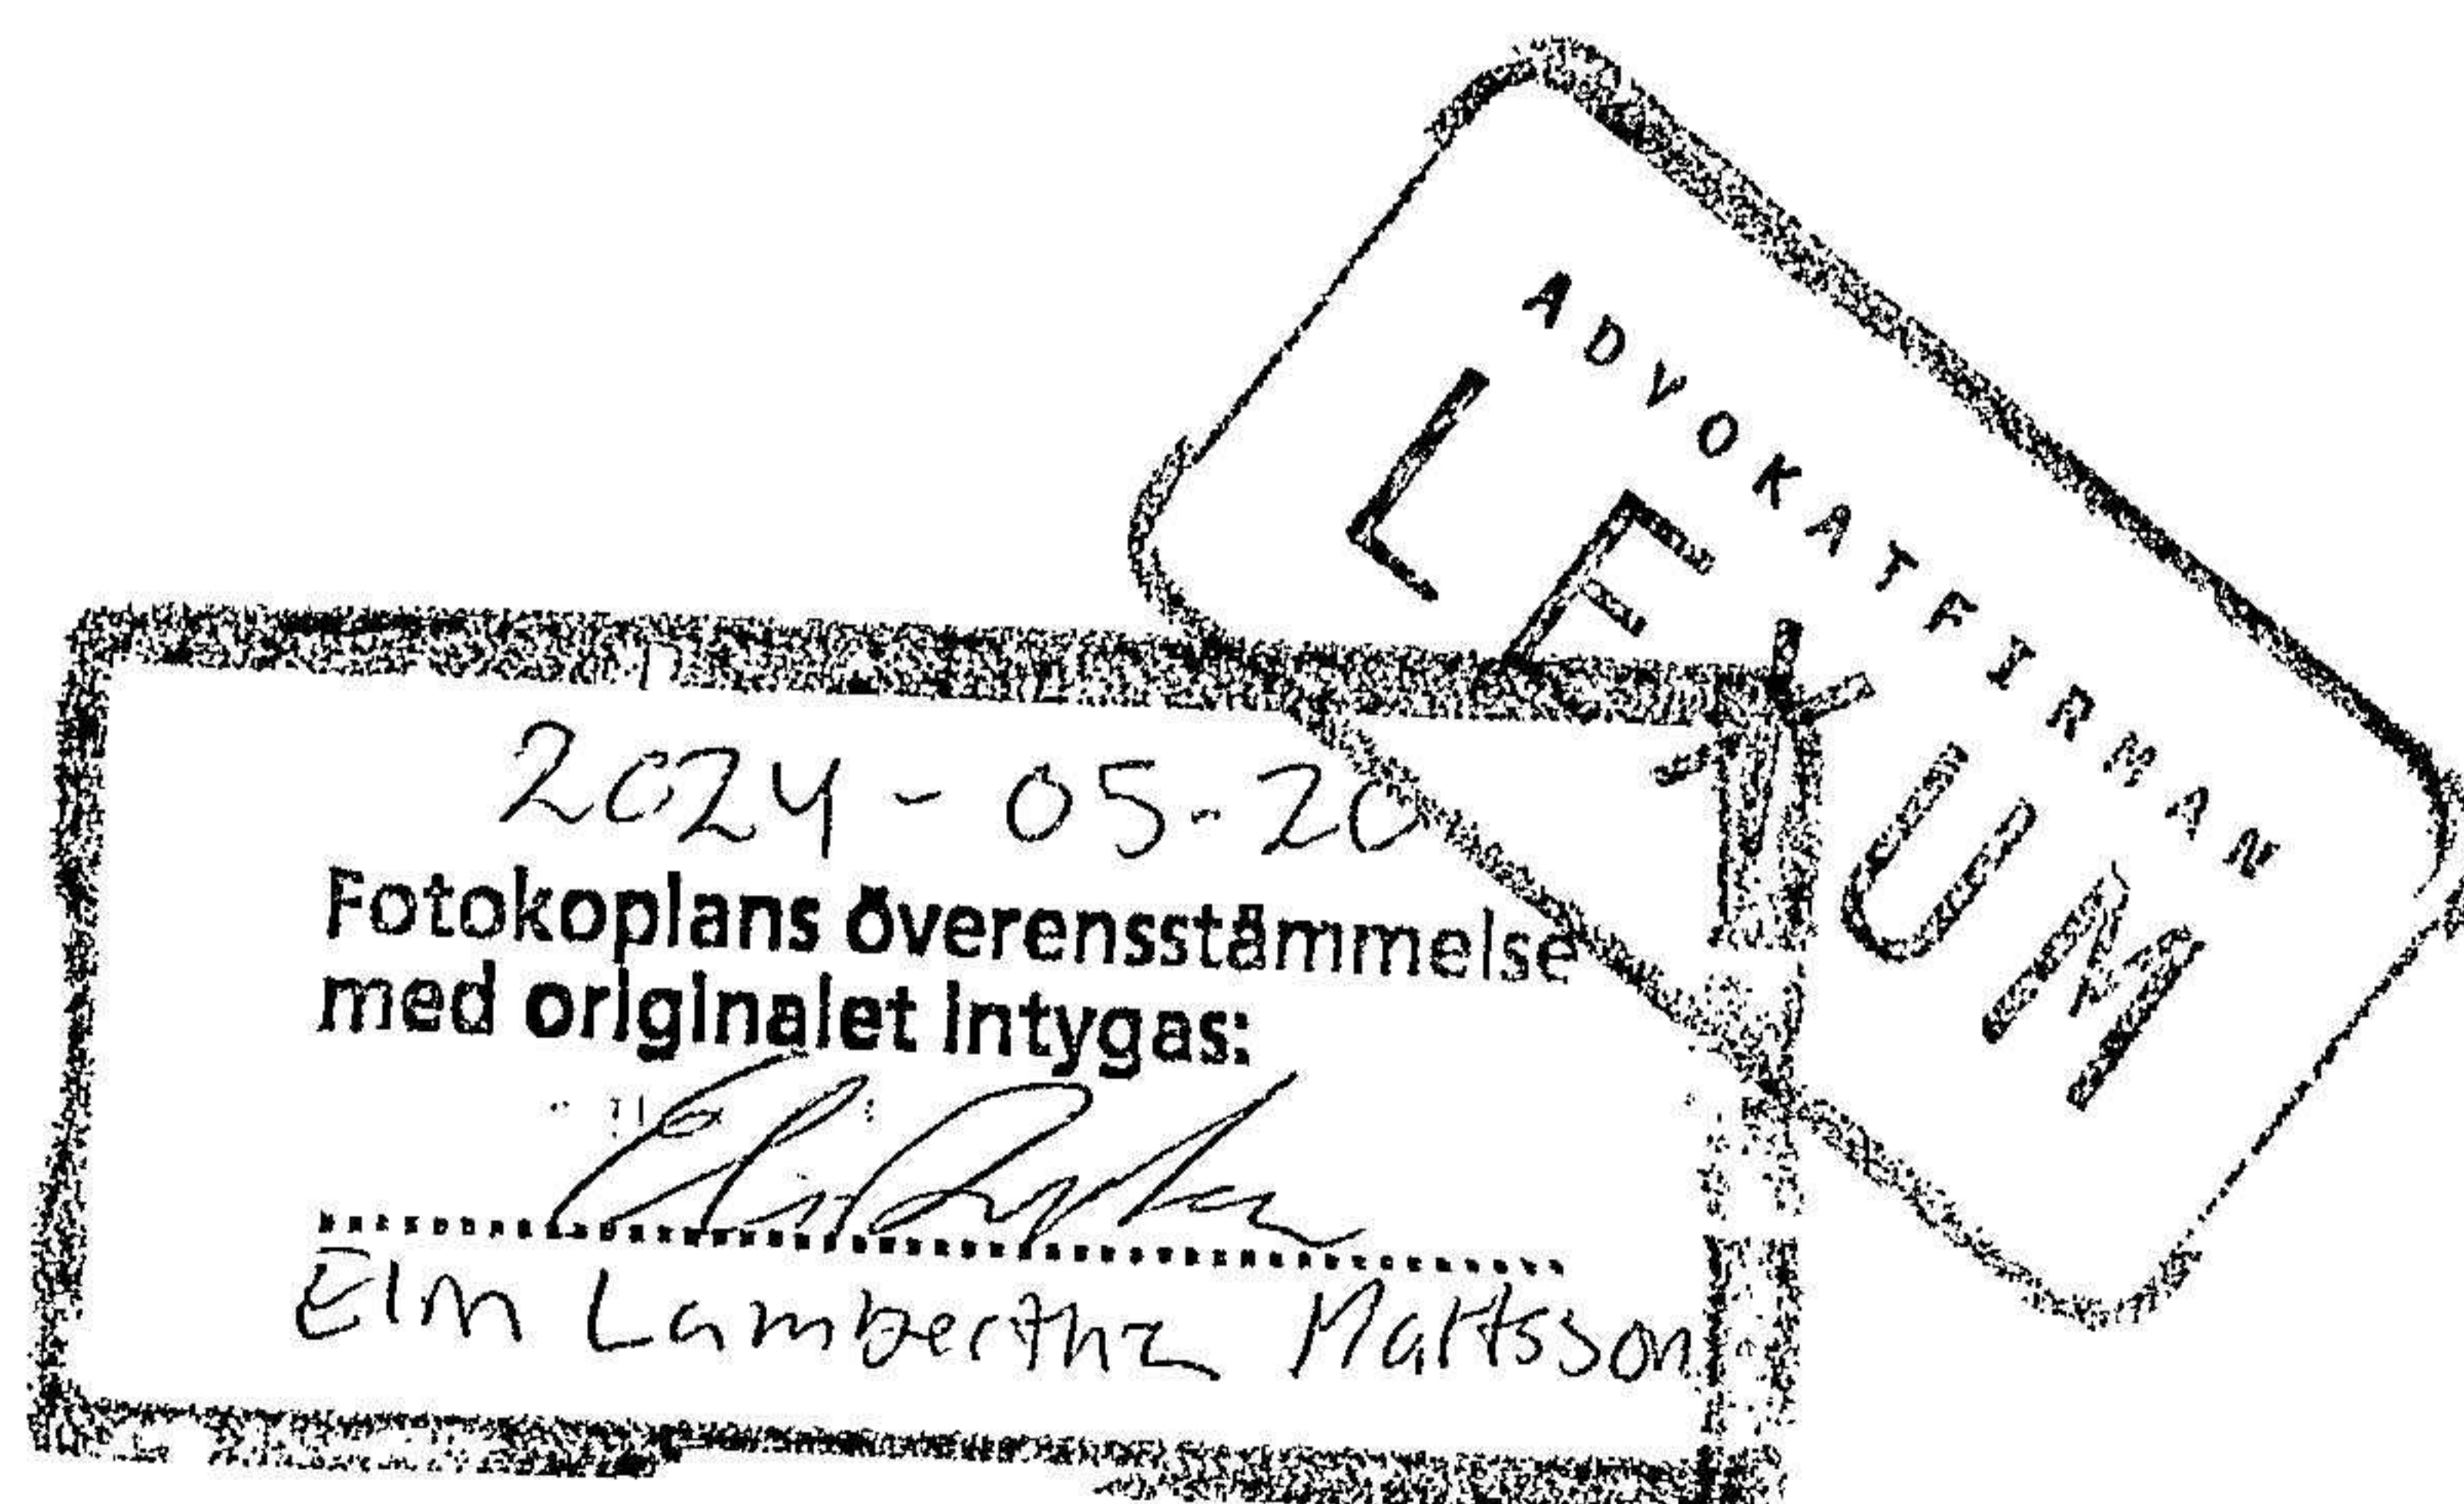 ADVOKATFIRMAN
LEXUM
2024-05-20
Fotokopians överensstämmelse
med originalet intygas:
Elin Lambertha Mattsson